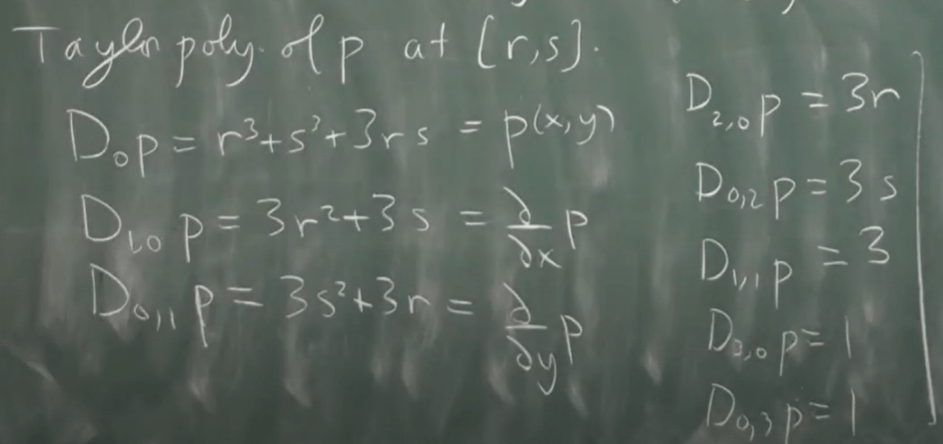 Taylor poly. of p at [r,s].
D₀p = r³+s³+3rs = p(x,y)
D₁,₀ p = 3r²+3s = ∂/∂x p
D₀,₁ p = 3s²+3r = ∂/∂y p
D₂,₀ p = 3r
D₀,₂ p = 3s
D₁,₁ p = 3
D₃,₀ p = 1
D₀,₃ p = 1